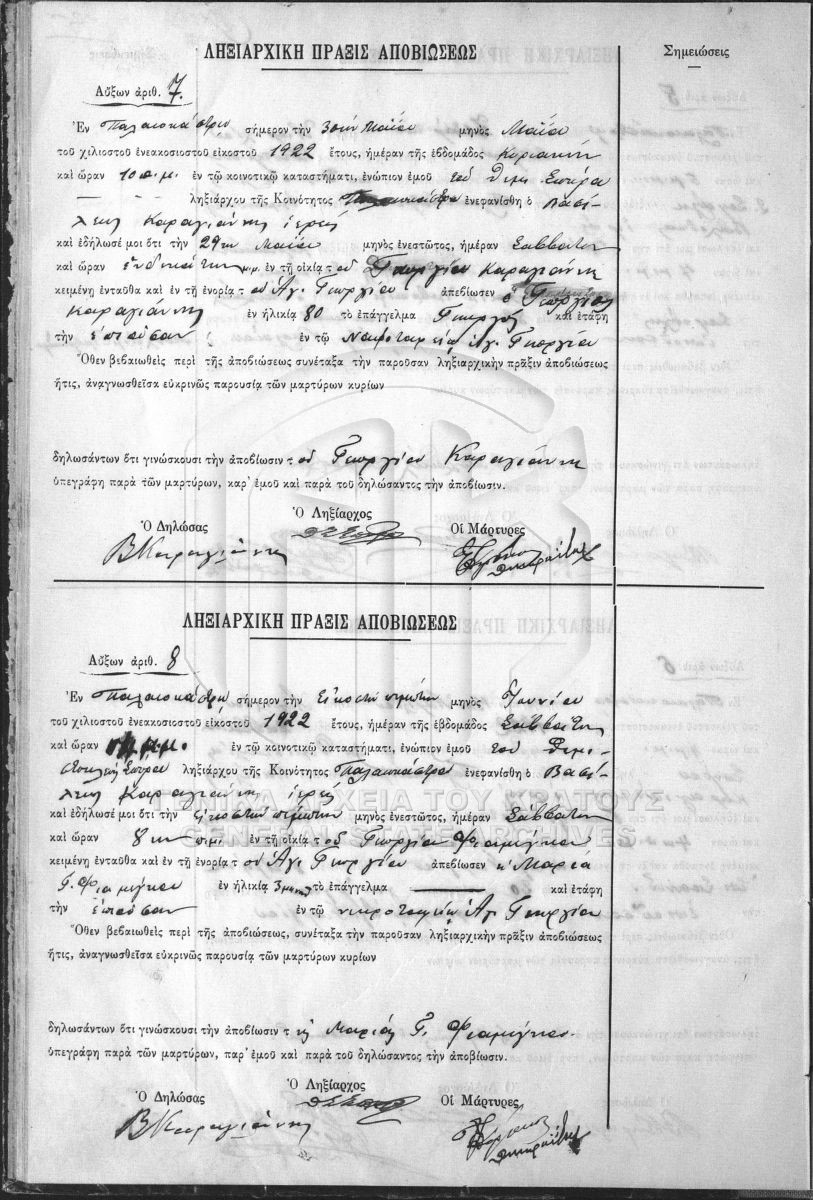 ΛΗΞΙΑΡΧΙΚΗ ΠΡΑΞΙΣ ΑΠΟΒΙΩΣΕΩΣ
Σημειώσεις
Αὔξων ἀριθ. 7.
Ἐν Παλαιοκάστρῳ σήμερον τὴν 30ὴν Μαΐου μηνὸς Μαΐου
τοῦ χιλιοστοῦ ἐνεακοσιοστοῦ εἰκοστοῦ 1922 ἔτους, ἡμέραν τῆς ἑβδομάδος Κυριακὴν
καὶ ὥραν 10 π.μ. ἐν τῷ κοινοτικῷ καταστήματι, ἐνώπιον ἐμοῦ τοῦ Δημ. Σπύρα
ληξιάρχου τῆς Κοινότητος ἐνεφανίσθη ὁ Βασί-
λειος Καραγιάννης ἱερεὺς
καὶ ἐδήλωσέ μοι ὅτι τὴν 29ην Μαΐου μηνὸς ἐνεστῶτος, ἡμέραν Σάββατον
καὶ ὥραν ἑνδεκάτην μ.μ. ἐν τῇ οἰκίᾳ τοῦ Γεωργίου Καραγιάννη
κειμένῃ ἐνταῦθα καὶ ἐν τῇ ἐνορίᾳ τοῦ Ἁγ. Γεωργίου ἀπεβίωσεν ὁ Γεώργιος
Καραγιάννης ἐν ἡλικίᾳ 80 τὸ ἐπάγγελμα Γεωργὸς καὶ ἐτάφη
τὴν ἐπιοῦσαν ἐν τῷ Νεκροταφείῳ Ἁγ. Γεωργίου
Ὅθεν βεβαιωθεὶς περὶ τῆς ἀποβιώσεως συνέταξα τὴν παροῦσαν ληξιαρχικὴν πρᾶξιν ἀποβιώσεως
ἥτις, ἀναγνωσθεῖσα εὐκρινῶς παρουσίᾳ τῶν μαρτύρων κυρίων
δηλωσάντων ὅτι γινώσκουσι τὴν ἀποβίωσιν τοῦ Γεωργίου Καραγιάννη
ὑπεγράφη παρὰ τῶν μαρτύρων, παρ' ἐμοῦ καὶ παρὰ τοῦ δηλώσαντος τὴν ἀποβίωσιν.
Ὁ Δηλώσας Ὁ Ληξίαρχος Οἱ Μάρτυρες
ΒΚαραγιάννης
ΛΗΞΙΑΡΧΙΚΗ ΠΡΑΞΙΣ ΑΠΟΒΙΩΣΕΩΣ
Αὔξων ἀριθ. 8
Ἐν Παλαιοκάστρῳ σήμερον τὴν Εἰκοστὴν πέμπτην μηνὸς Ἰουνίου
τοῦ χιλιοστοῦ ἐνεακοσιοστοῦ εἰκοστοῦ 1922 ἔτους, ἡμέραν τῆς ἑβδομάδος Σάββατον
καὶ ὥραν μ.μ. ἐν τῷ κοινοτικῷ καταστήματι, ἐνώπιον ἐμοῦ τοῦ Δημ.
Σπύρα ληξιάρχου τῆς Κοινότητος Παλαιοκάστρου ἐνεφανίσθη ὁ Βασί-
λειος Καραγιάννης ἱερεὺς
ΓΕΝΙΚΑ ΑΡΧΕΙΑ ΤΟΥ ΚΡΑΤΟΥΣ
GENERAL STATE ARCHIVES
καὶ ἐδήλωσέ μοι ὅτι τὴν Εἰκοστὴν πέμπτην μηνὸς ἐνεστῶτος, ἡμέραν Σάββατον
καὶ ὥραν 8ην π.μ. ἐν τῇ οἰκίᾳ τοῦ Γεωργίου
κειμένῃ ἐνταῦθα καὶ ἐν τῇ ἐνορίᾳ τοῦ Ἁγ. Γεωργίου ἀπεβίωσεν ἡ Μαρία
Γ. ἐν ἡλικίᾳ 3 μηνῶν τὸ ἐπάγγελμα καὶ ἐτάφη
τὴν ἐπιοῦσαν ἐν τῷ νεκροταφείῳ Ἁγ. Γεωργίου
Ὅθεν βεβαιωθεὶς περὶ τῆς ἀποβιώσεως, συνέταξα τὴν παροῦσαν ληξιαρχικὴν πρᾶξιν ἀποβιώσεως
ἥτις, ἀναγνωσθεῖσα εὐκρινῶς παρουσίᾳ τῶν μαρτύρων κυρίων
δηλωσάντων ὅτι γινώσκουσι τὴν ἀποβίωσιν τῆς Μαρίας Γ.
ὑπεγράφη παρὰ τῶν μαρτύρων, παρ' ἐμοῦ καὶ παρὰ τοῦ δηλώσαντος τὴν ἀποβίωσιν.
Ὁ Δηλώσας Ὁ Ληξίαρχος Οἱ Μάρτυρες
ΒΚαραγιάννης